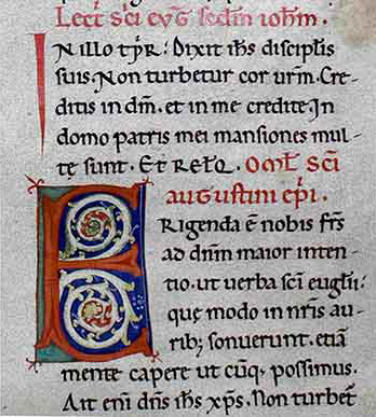 Lect̄ sc̄i eūg sed̄m ioh̄m.
IN illo tp̄r: Dixit ih̄s disciplīs
suis. Non turbetur cor ur̄m. Cre-
ditis in dm̄. et in me credite. In
domo patris mei mansiones mul-
tę sunt. Et relq̄. Oml̄ sc̄i
augustini ep̄i.
ERigenda ē nobis fr̄s
ad dn̄m maior inten-
tio. ut uerba sc̄i eugl̄ii:
quę modo in nr̄is au-
rib; sonuerunt. etiā
mente capere ut cūq, possimus.
Ait eni dn̄s ih̄s xp̄s. Non turbet̄